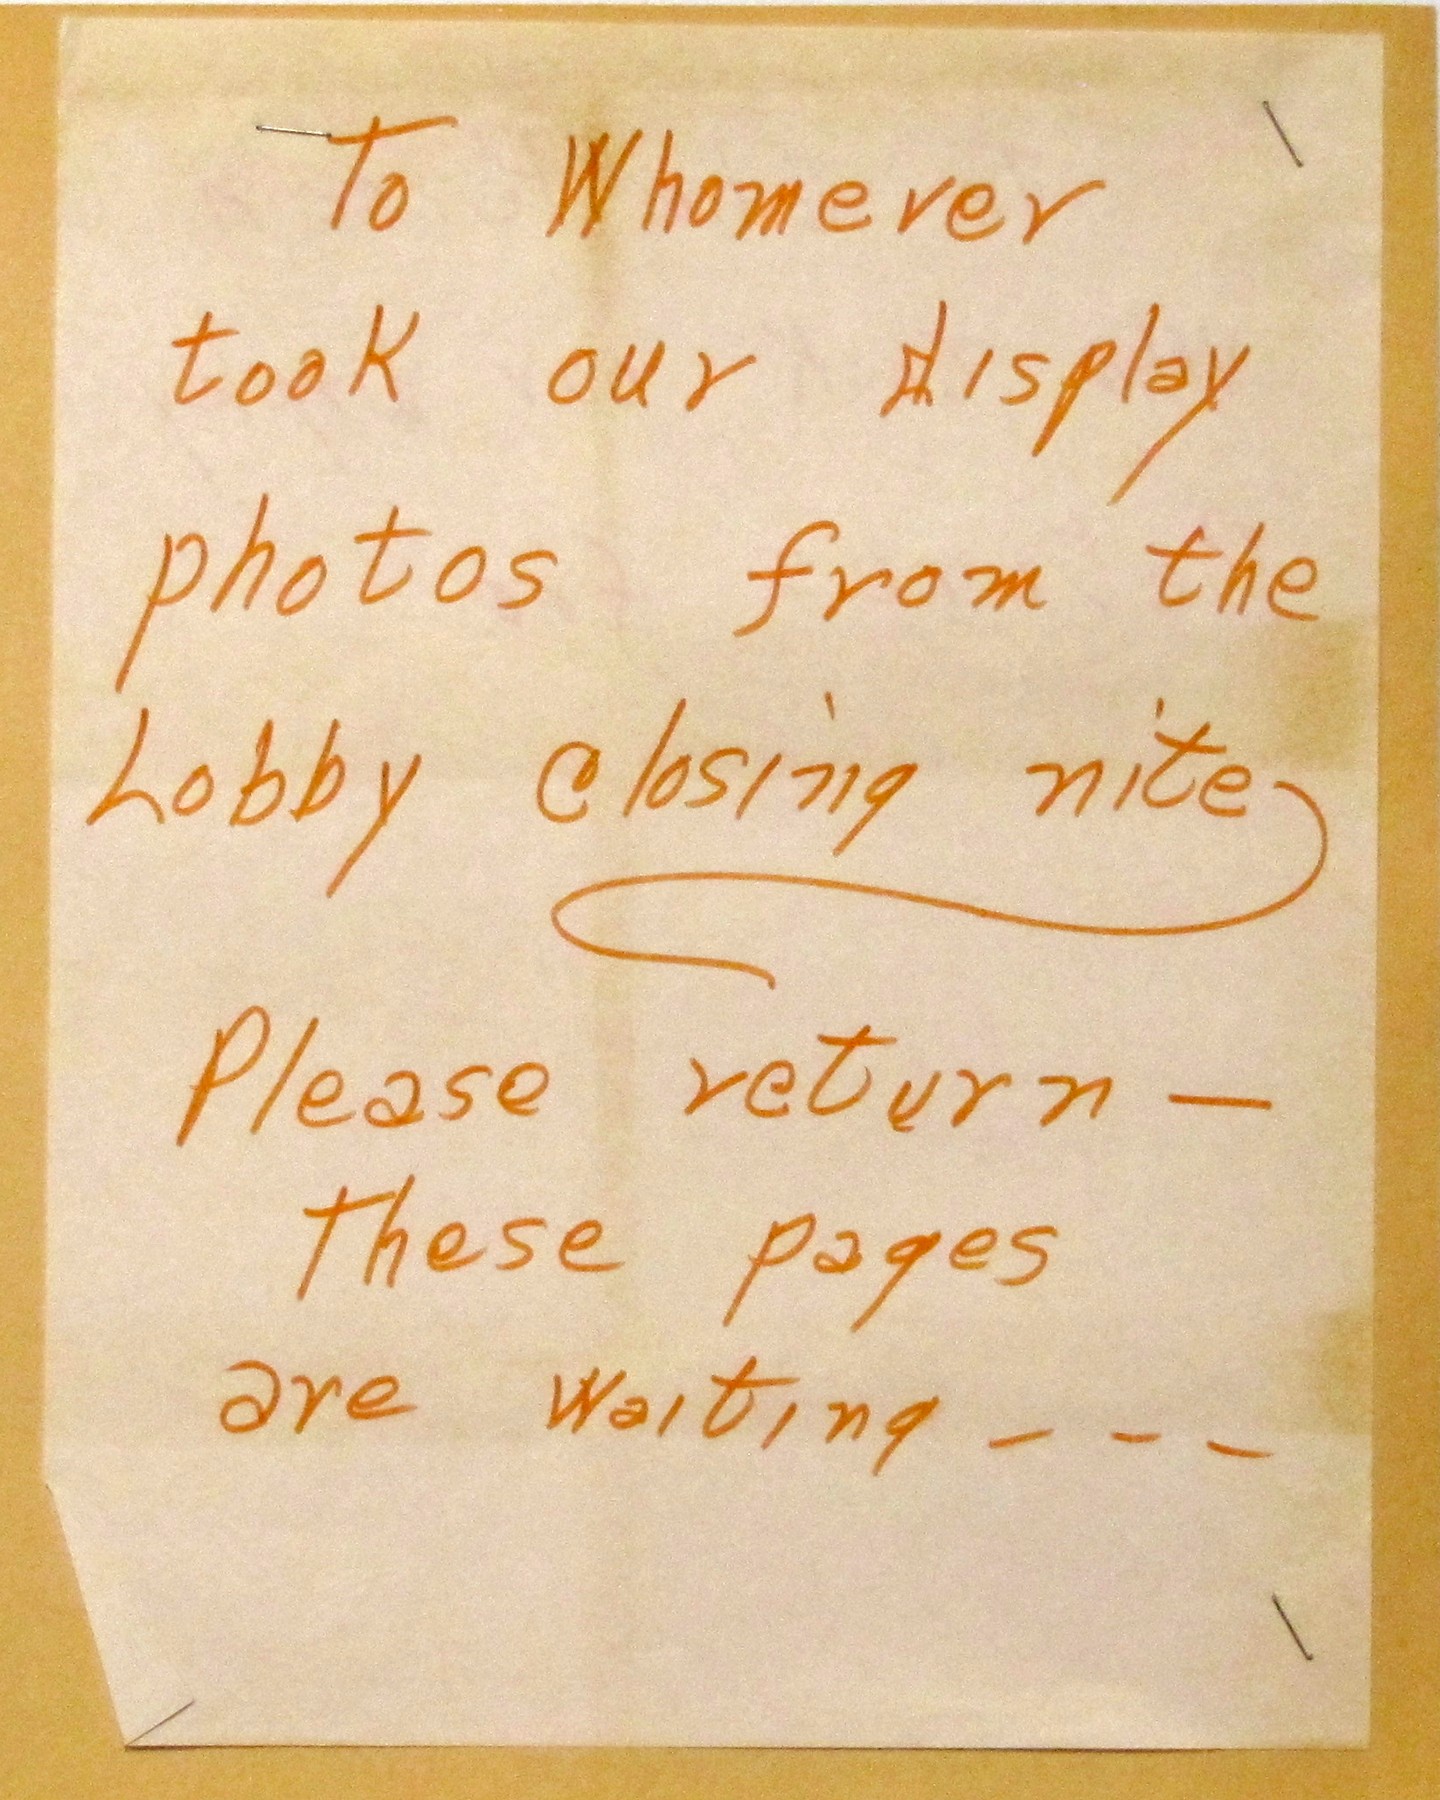 To Whomever
took our display
photos from the
Lobby closing nite
Please return —
these pages
are waiting - - -